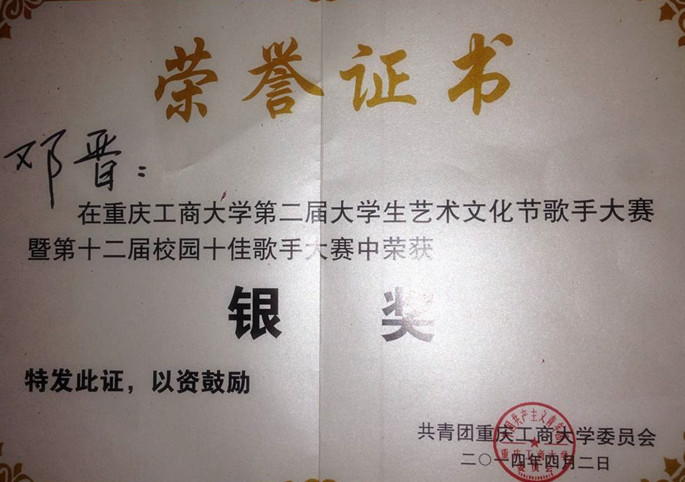 荣誉证书
邓晋：
在重庆工商大学第二届大学生艺术文化节歌手大赛
暨第十二届校园十佳歌手大赛中荣获
银 奖
特发此证，以资鼓励
共青团重庆工商大学委员会
二〇一四年四月二日